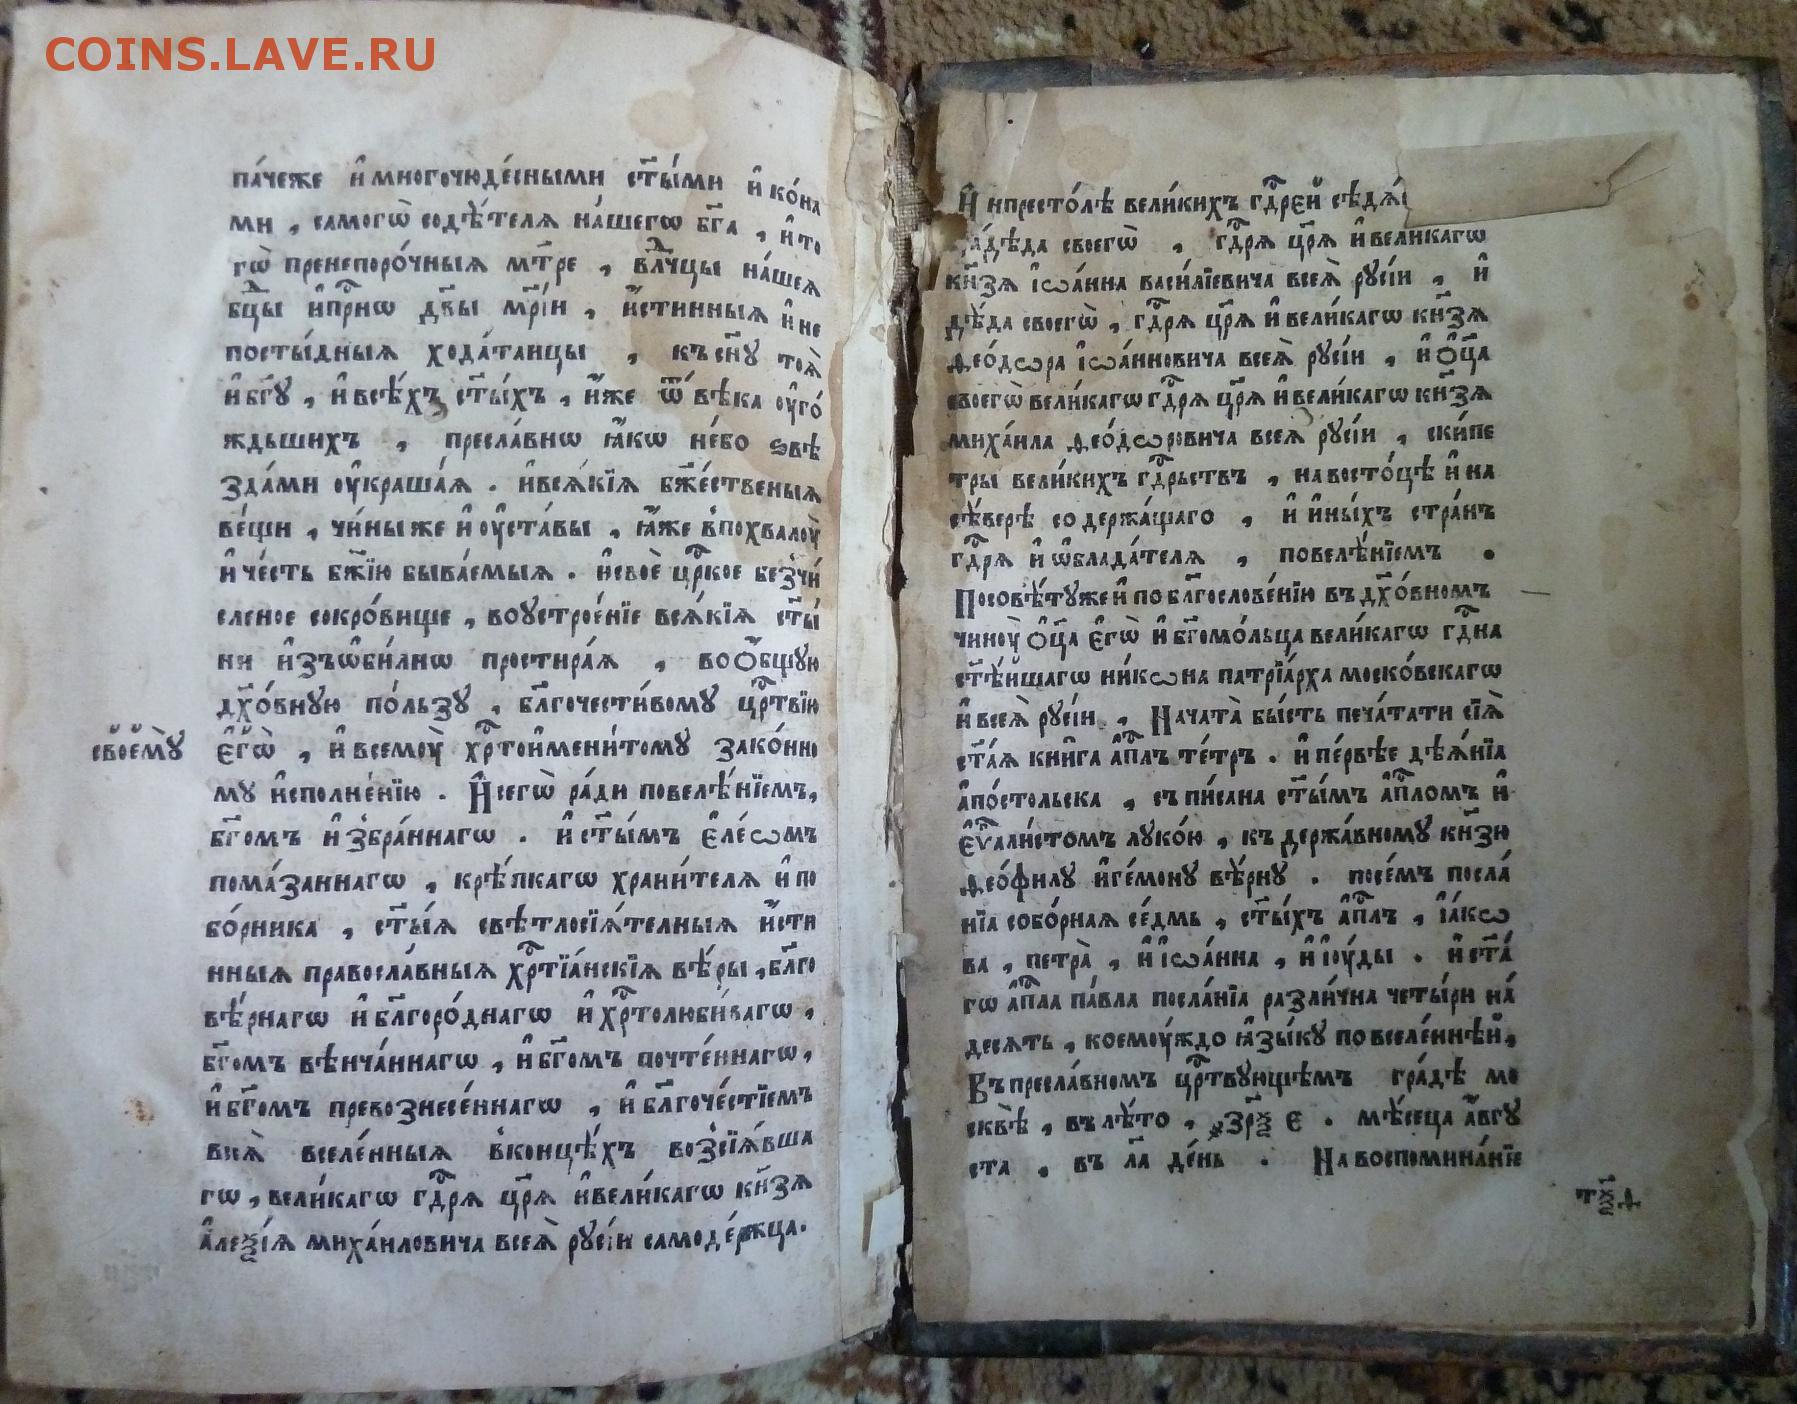 COINS.LAVE.RU
па́чеже и҆ многочюде́сными ст҃ы́ми и҆ ко́на
ми , самогѡ̀ содѣ́теля на́шегѡ бг҃а , и҆ то
гѡ̀ пренепоро́чныя мт҃ре , влⷣчцы на́шея
бцⷣы и҆ прⷭ҇нѡ дв҃ы мр҃і́и , и҆́стинныя и҆ не
посты́дныя хода́таицы , къ сн҃у тоя̀
и҆ бг҃у , и҆ всѣ́хъ ст҃ы́хъ , и҆́же ѿ вѣ́ка оу҆го́
ждьшихъ , пресла́внѡ ꙗ҆́кѡ не́бо ѕвѣ
зда́ми оу҆краша́я . и҆ вся́кїя бж҃е́ственыя
ве́щи , чи́ны же и҆ оу҆ста́вы , ꙗ҆́же в̾похвалоу̀
и҆ че́сть бж҃їю быва́емыя . и҆ своѐ црⷭ҇кое без̾чи́
сленое сокро́вище , воустрое́нїе вся́кїя ст҃ы́
ни и҆зъѡби́лнѡ простира́я , воѻ҆́бщую
дх҃о́вную по́льзу , бл҃гочести́вому црⷭ҇твїю
своемꙋ̀
є҆гѡ̀ , и҆ всемоу̀ хрⷭ҇тоимени́тому зако́нно
му и҆сполне́нїю . И҆ сегѡ̀ ра́ди повелѣ́нїемъ,
бг҃омъ и҆з̾бра́ннагѡ . и҆ ст҃ы́мъ є҆ле́ѡмъ
пома́заннагѡ , крѣ́пкагѡ храни́теля и҆ по
бо́рника , ст҃ы́я свѣтлосїя́телныя и҆́сти
нныя правосла́вныя хрⷭ҇тїа́нскїя вѣ́ры , бл҃го
вѣ́рнагѡ и҆ бл҃горо́днагѡ и҆ хрⷭ҇толюби́вагѡ ,
бг҃омъ вѣнча́ннагѡ , и҆ бг҃омъ почте́ннагѡ ,
и҆ бг҃омъ превознесе́ннагѡ , и҆ бл҃гоче́стїемъ
вся̀ вселе́нныя в̾концѣ́хъ воз̾сїя́вша
гѡ , вели́кагѡ гдⷭ҇ря цр҃я и҆ вели́кагѡ кн҃зя
а҆леѯі́я миха́иловича всея̀ русі́и самоде́ржца .
И҆ нпресто́лѣ вели́кихъ гдⷭ҇рей сѣдя́
дѣда своегѡ̀ , гдⷭ҇ря цр҃я и҆ великагѡ
кн҃зя і҆ѡа́нна васи́лїевича всея̀ русі́и , и҆
дѣ́да своегѡ̀ , гдⷭ҇ря цр҃я и҆ вели́кагѡ кн҃зя
ѳео́дѡра і҆ѡа́нновича всея̀ русі́и , и҆ ѻ҆ц҃а
своегѡ̀ вели́кагѡ гдⷭ҇ря цр҃я и҆ вели́кагѡ кн҃зя
миха́ила ѳео́дѡровича всея̀ русі́и , ски́пе
тры вели́кихъ гдⷭ҇рьствъ , на восто́цѣ и҆ на
сѣ́верѣ содержа́щаго , и҆ и҆ны́хъ стра́нъ
гдⷭ҇ря и҆ ѡ҆блада́теля , повелѣ́нїемъ .
Посовѣ́ту же и҆ по бл҃гослове́нїю въ дх҃о́вномъ
чиноу̀ ѻ҆ц҃а є҆гѡ̀ и҆ бг҃омо́льца вели́кагѡ гдⷭ҇на
ст҃ѣ́йшагѡ ни́кѡна патрїа́рха моско́вскагѡ
и҆ всея̀ русі́и , Нача́та бы́сть печа́тати сїя̀
ст҃а́я кни́га а҆пⷭ҇лъ те́тръ . и҆ пе́рвѣе дѣя́нїа
а҆по́стольска , съпи́сана ст҃ы́мъ а҆пⷭ҇ломъ и҆
є҆ѵⷢ҇али́стомъ луко́ю , къ держа́вному кн҃зю
ѳео́филу и҆ге́мону вѣ́рну . посе́мъ посла́
нїа собо́рная се́дмь , ст҃ы́хъ а҆пⷭ҇лъ , і҆а́кѡ
ва , петра̀ , и҆ і҆ѡа́нна , и҆ і҆оу́ды . и҆ ст҃а́
гѡ а҆пⷭ҇ла па́вла посла́нїа разли́чна четы́ри на́
десять , коемоу́ждо ꙗ҆зы́ку по вселе́ннѣй ,
Въ пресла́вномъ црⷭ҇твующемъ гра́дѣ мо
сквѣ̀ , въ лѣ́то , ҂зрѯ҃ є . мѣ́сеца а҆́вгу
ста , въ л҃а де́нь . На воспомина́нїе
тѯ҃ѳ